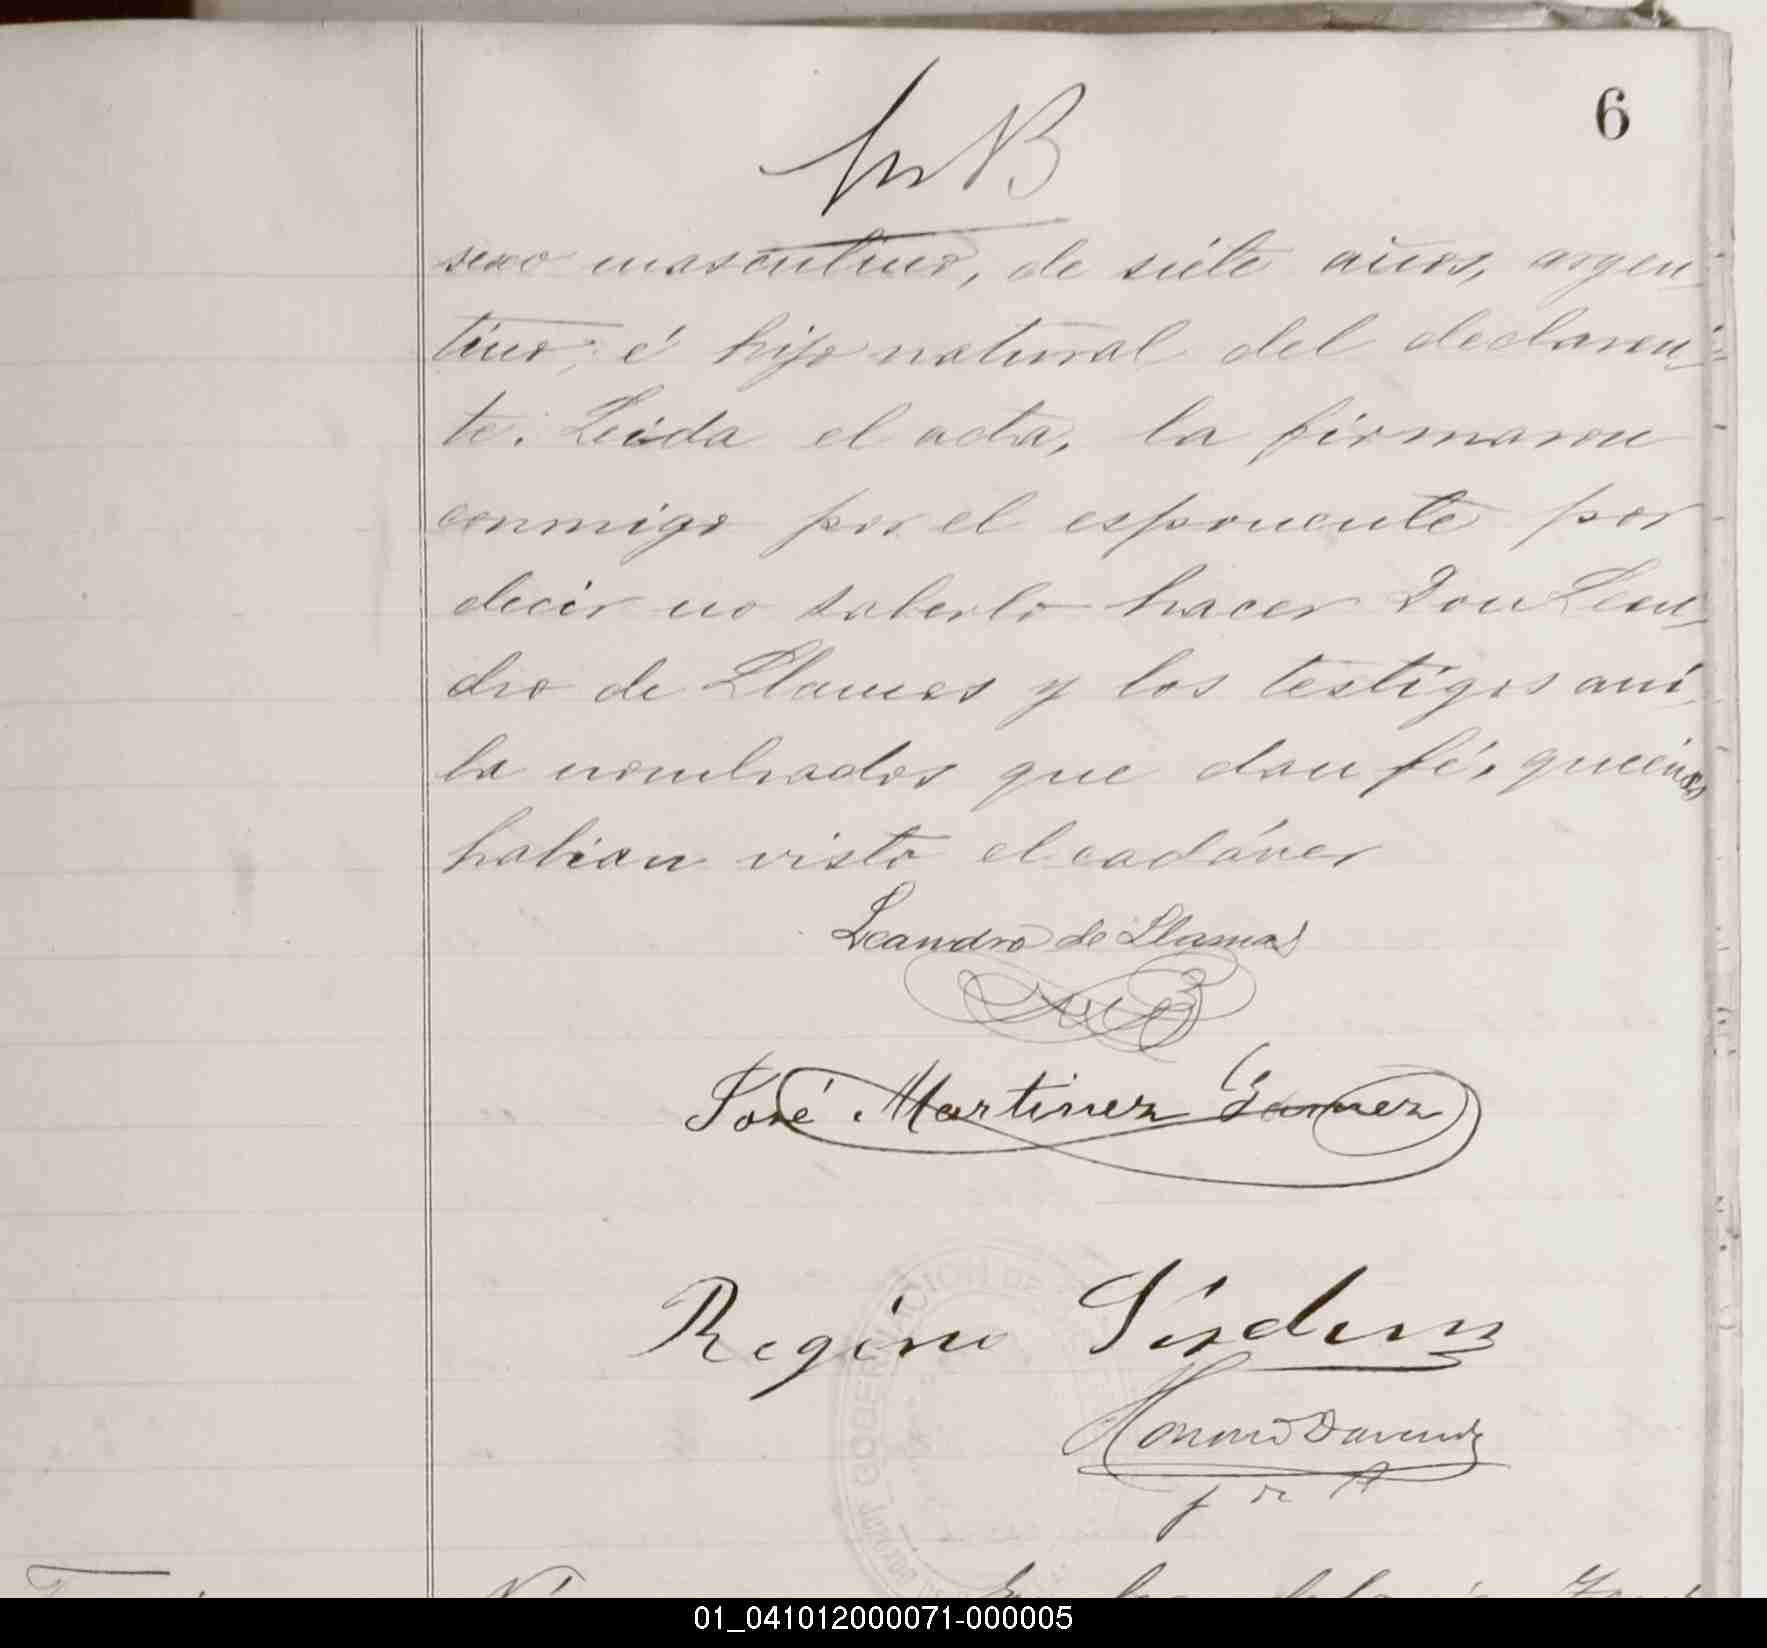 6
sexo masculino, de siete años, argen-
tino, é hijo natural del declaran-
te. Leida el acta, la firmaron
conmigo por el esponente por
decir no saberlo hacer Don Lean-
dro de Llamas y los testigos arri
ba nombrados que dan fé, quienes
habian visto el cadáver
Leandro de Llamas
José Martinez
Regino
GOBERNACION DE
01_041012000071-000005